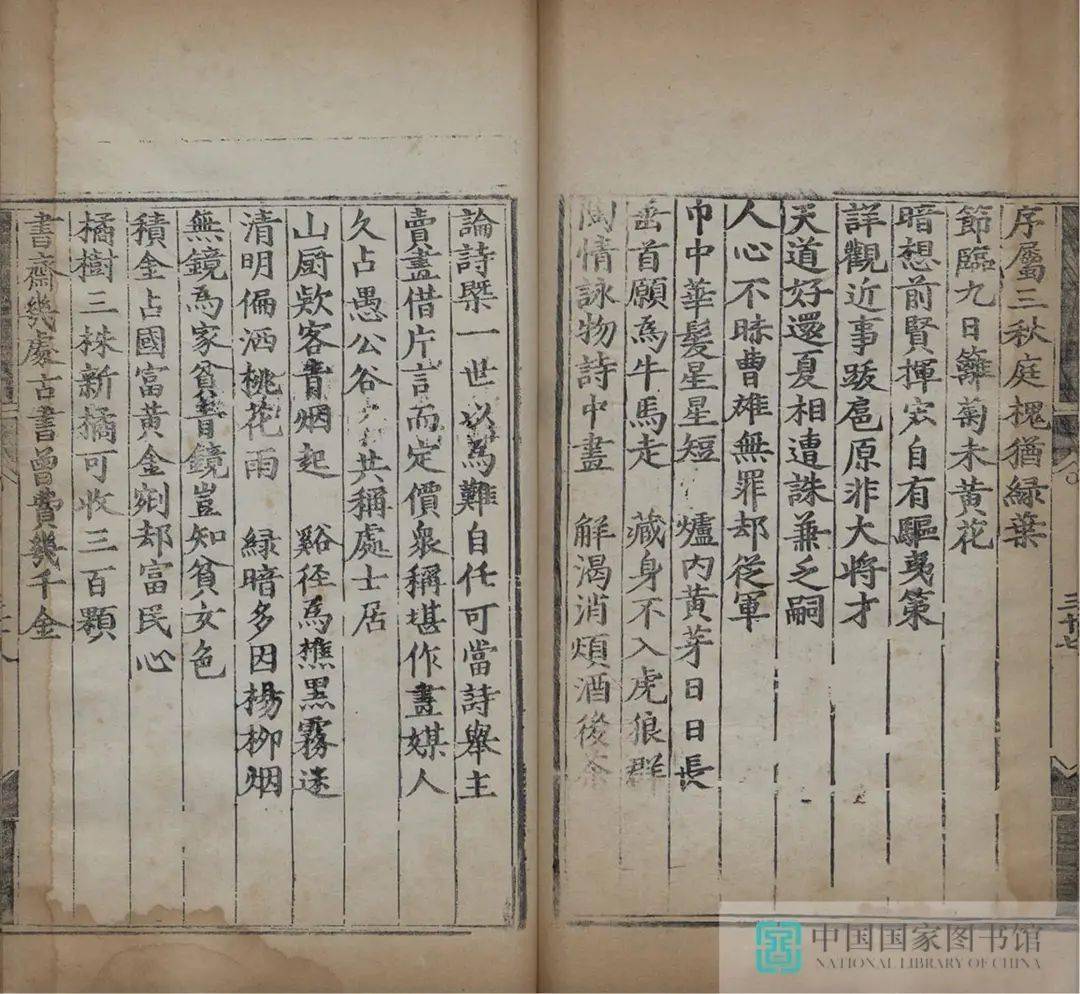 序屬三秋庭槐猶綠葉
節臨九日籬菊未黃花
暗想前賢揮宏自有驅夷策
詳觀近事跋扈原非大將才
天道好還夏相遭誅兼乏嗣
人心不昧曹雄無罪却從軍
巾中華髮星星短 爐內黃芽日日長
垂首願為牛馬走 藏身不入虎狼群
陶情詠物詩中畫 解渴消煩酒後茶
三十七
論詩槩一世以為難自任可當詩舉主
賣畫借片言而定價衆稱堪作畫媒人
久占愚公谷 共稱處士居
山厨欵客青烟起 谿徑為樵黑霧迷
清明偏洒桃花雨 緑暗多因楊柳烟
無鏡為家貧青鏡豈知貧女色
積金占國富黃金剜却富民心
橘樹三株新摘可收三百顆
書齋幾處古書曾費幾千金
中国国家图书馆
NATIONAL LIBRARY OF CHINA